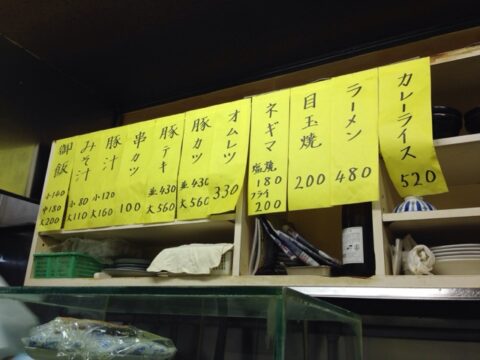 カレーライス
520
ラーメン
480
目玉焼
200
ネギマ
塩焼
180
フライ
200
オムレツ
330
豚カツ
並430
大560
豚テキ
並430
大560
串カツ
100
豚汁
小120
大160
みそ汁
小80
大110
御飯
小140
中180
大200